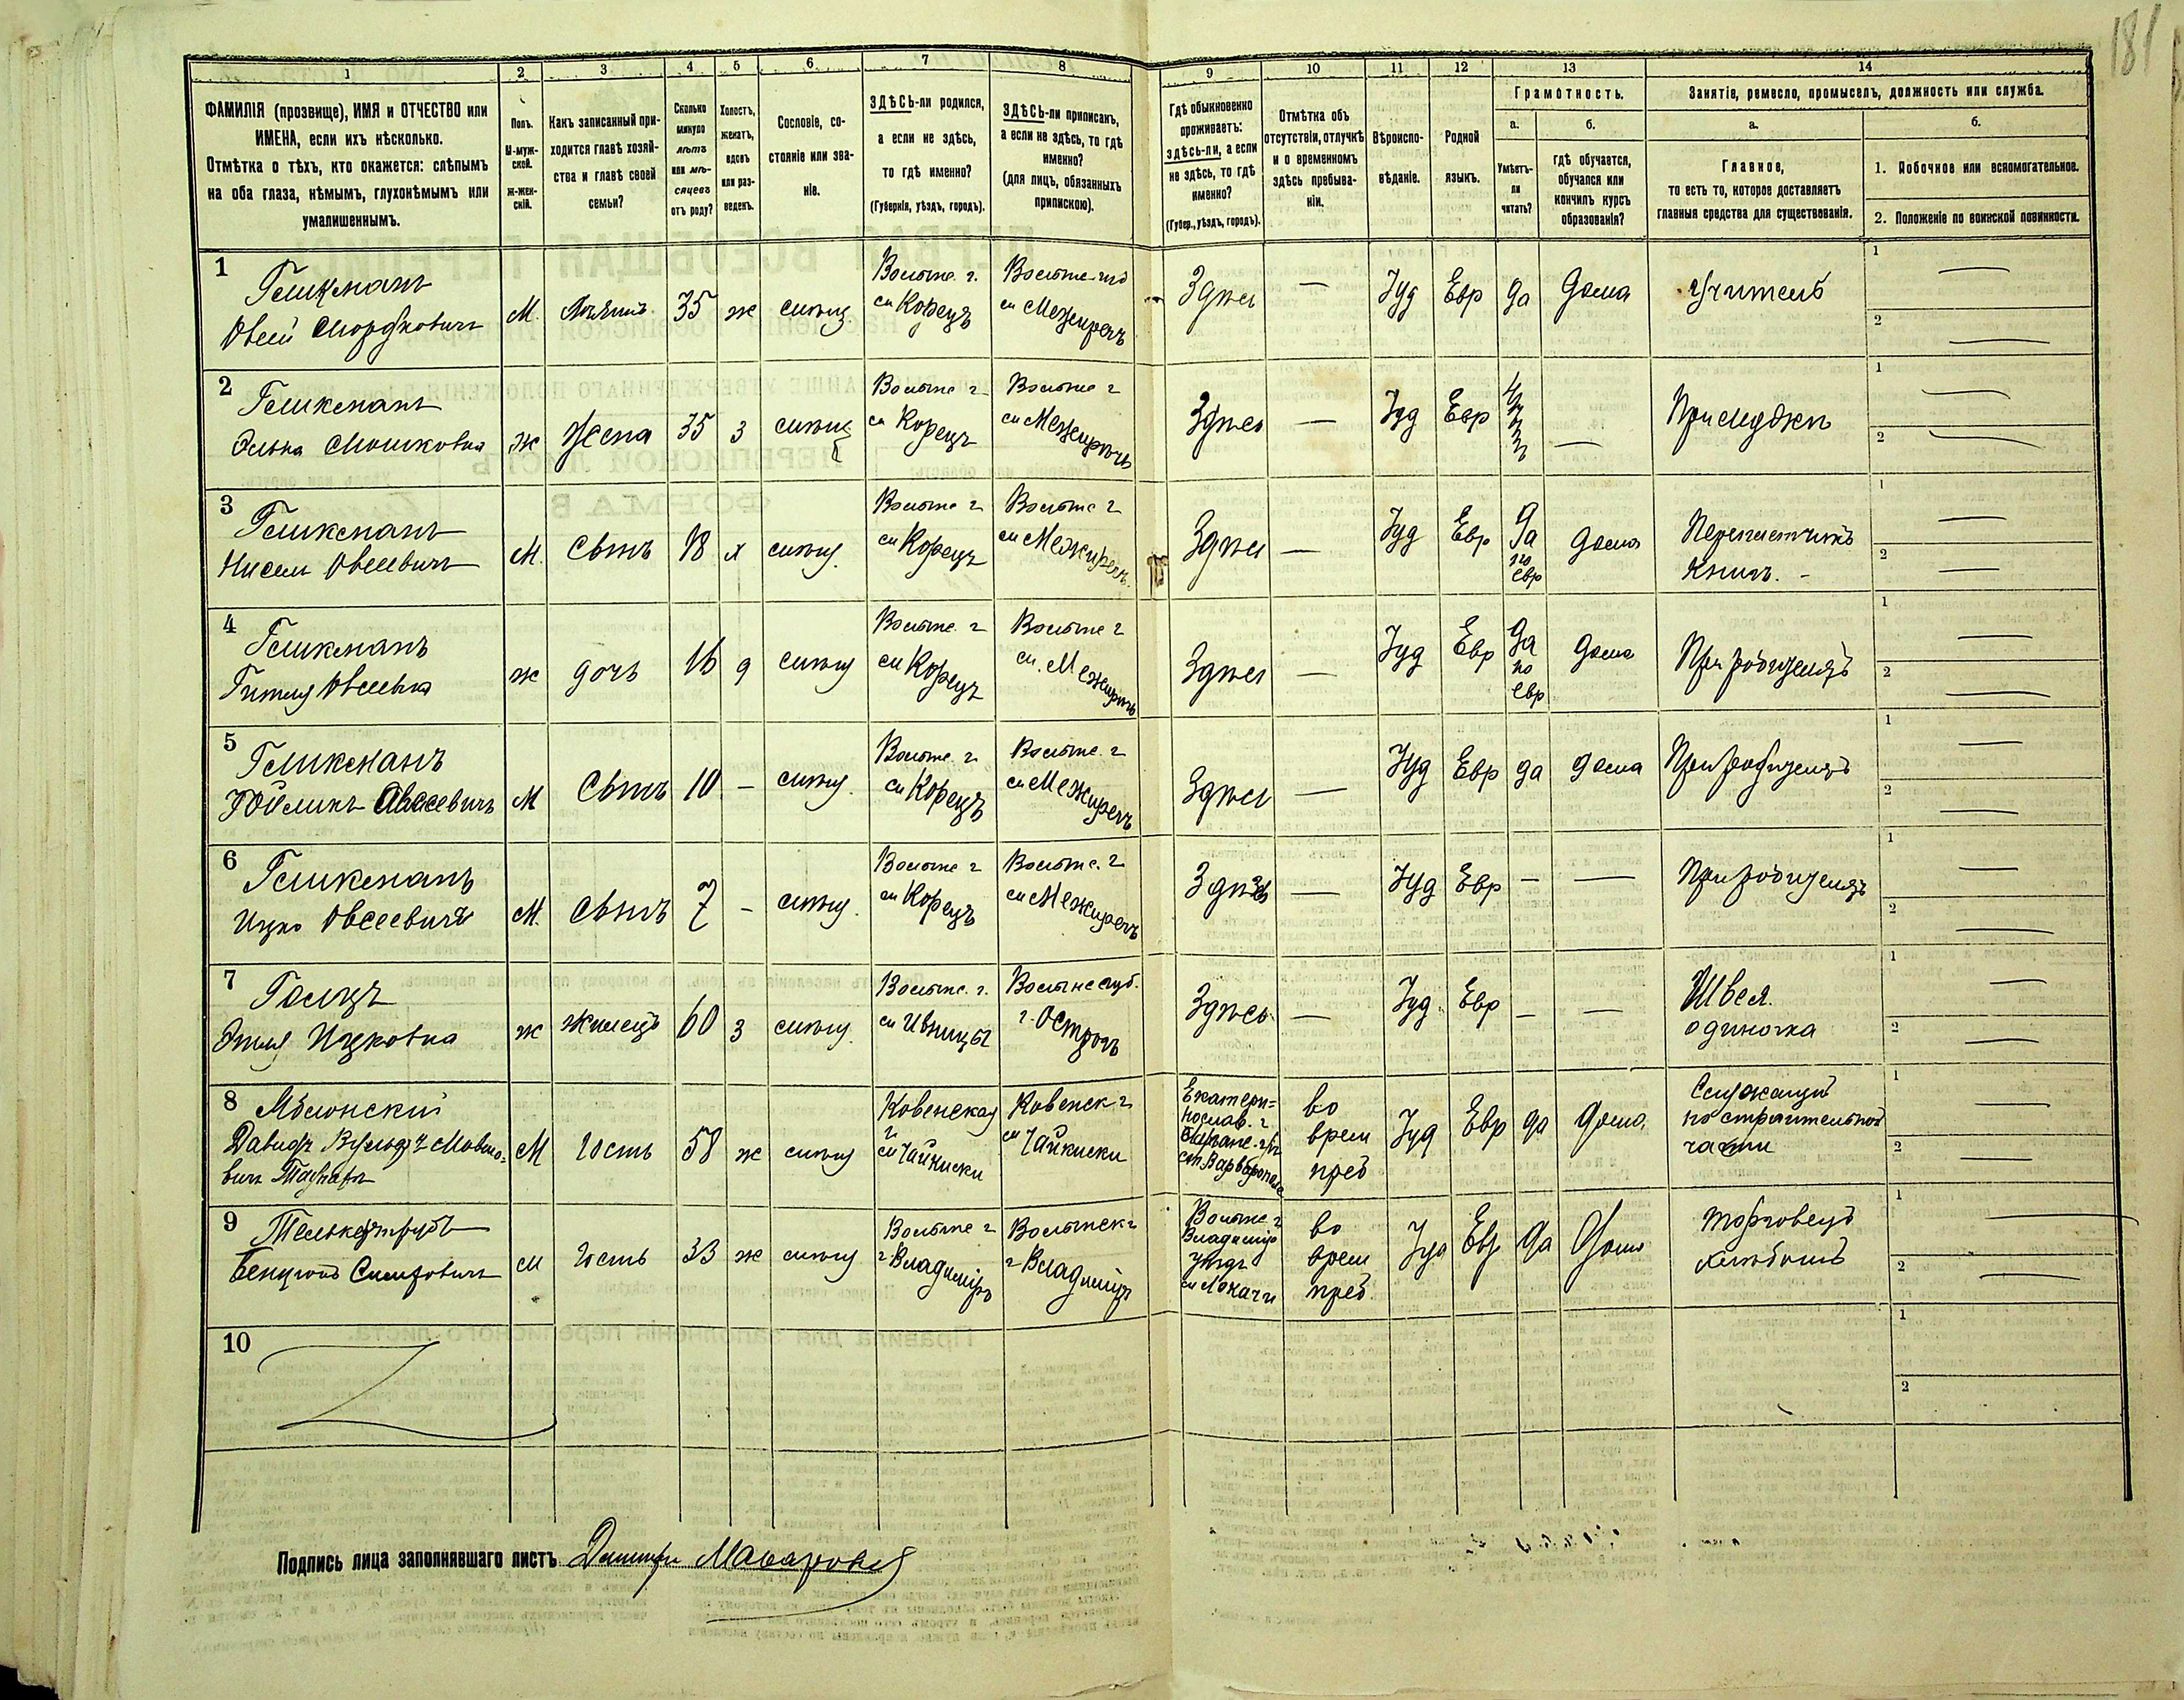 181
1 2 3 4 5 6 7 8 9 10 11 12 13 14
ФАМИЛІЯ (прозвище), ИМЯ и ОТЧЕСТВО или
ИМЕНА, если ихъ нѣсколько.
Отмѣтка о тѣхъ, кто окажется: слѣпымъ
на оба глаза, нѣмымъ, глухонѣмымъ или
умалишеннымъ.
Полъ.
М-муж-
ской.
Ж-жен-
скій.
Какъ записанный при-
ходится главѣ хозяй-
ства и главѣ своей
семьи?
Сколько
минуло
лѣтъ
или мѣ-
сяцевъ
отъ роду?
Холостъ,
женатъ,
вдовъ
или раз-
веденъ.
Сословіе, со-
стояніе или зва-
ніе.
ЗДѢСЬ-ли родился,
а если не здѣсь,
то гдѣ именно?
(Губернія, уѣздъ, городъ).
ЗДѢСЬ-ли приписанъ,
а если не здѣсь, то гдѣ
именно?
(для лицъ, обязанныхъ
припискою).
Гдѣ обыкновенно
проживаетъ:
здѣсь-ли, а если
не здѣсь, то гдѣ
именно?
(Губер., уѣздъ, городъ).
Отмѣтка объ
отсутствіи, отлучкѣ
и о временномъ
здѣсь пребыва-
ніи.
Вѣроиспо-
вѣданіе.
Родной
языкъ.
Грамотность.
а.
Умѣетъ-
ли
читать?
б.
гдѣ обучается,
обучался или
кончилъ курсъ
образованія?
Занятіе, ремесло, промыселъ, должность или служба.
а.
Главное,
то есть то, которое доставляетъ
главныя средства для существованія.
б.
1. Побочное или вспомогательное.
2. Положеніе по воинской повинности.
1
Гликманъ
Овсей Мордковичъ
М. 35 ж
Волынс. г.
см Корецъ
см Межиречъ
Здѣсь — Іуд Евр да дома учитель
1 —
2 —
2
Гликманъ
Элька Мошковна
ж жена 35 з
Волынс г
см Корецъ
Волынс г
см Межиречъ
Здѣсь — Іуд Евр —
При мужѣ
1 —
2 —
3
Гликманъ
Нисель Овсеевичъ
М. Сынъ 18 х
Волынс г
см Корецъ
Волынс г
см Межиречъ
Здѣсь — Іуд Евр да по евр дома
Переплетчикъ
книгъ. -
1 —
2 —
4
Гликманъ
Гитля Овсеевна
ж дочь 16 д
Волынс. г
см Корецъ
Волынс г
см. Межиречъ
Здѣсь — Іуд Евр да по евр дома
При родителяхъ
1 —
2 —
5
Гликманъ
Овсеевичъ
М Сынъ 10 —
Волынс. г
см Корецъ
Волынс. г
см Межиречъ
Здѣсь — Іуд Евр да дома
При родителяхъ
1 —
2 —
6
Гликманъ
Ицко Овсеевичъ
М. Сынъ 7 -
Волынс г
см Корецъ
Волынс. г
см Межиречъ
Здѣсь — Іуд Евр — —
При родителяхъ
1 —
2 —
7
Гольцъ
Этля Ицковна
ж жилецъ 60 з
Волынс. г.
см Ивницы
Волынс губ.
г. Острогъ
Здѣсь — Іуд. Евр — —
Швея.
одиночка
1 —
2 —
8
Яблонский
Давидъ
М Гость 58 ж
Ковенская
г
см Чайкиски
Ковенск г
см Чайкиски
Екатери=
нослав. г
во
врем
преб
Іуд Евр да дома
Служащій
по строительной
части
1
2 —
9
м Гость 33 ж
Волынс г
г Владиміръ
Волынск г
г Владиміръ
Волынс г
Владимір
уѣздъ
см Локачи
во
врем
преб
Іуд Евр да дома
торговецъ
хлѣбомъ
1 —
2 —
10
1
2
Подпись лица заполнявшаго листъ